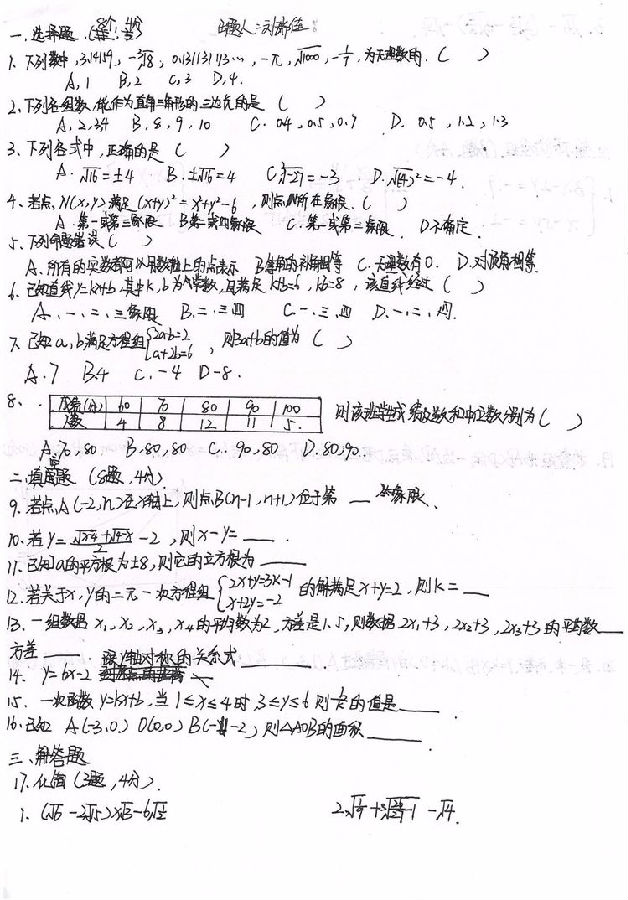 一、选择题 (8个, 4分) 出题人:刘
1. 下列数中, 3.14159, -∛8, 0.131131113…, -π, √100, -1/7, 为无理数的 ( )
A, 1 B, 2 C, 3 D, 4.
2. 下列各组数, 能作为直角三角形的三边长的是 ( )
A, 2, 3, 4 B, 8, 9, 10 C. 0.4, 0.5, 0.9 D. 0.5, 1.2, 1.3
3. 下列各式中, 正确的是 ( )
A. √16=±4 B. ±√16=4 C. ∛-27=-3 D. √(-4)²=-4
4. 若点 N(x,y)满足 (x+y)²=x²+y²-6, 则点N所在象限. ( )
A. 第一或第三象限 B. 第二或四象限 C. 第一或第二象限 D. 不确定.
5. 下列命题错误 ( )
A. 所有的实数都可以用数轴上的点表示 B. 等角的补角相等 C. 无理数有0. D. 对顶角相等.
6. 已知直线y=kx+b, 其中k, b为常数, 且满足 k+b=6, kb=8, 该直线经过 ( )
A. 一、二、三象限 B. 二、三、四 C. 一、三、四 D. 一、二、四.
7. 已知a, b满足方程组{2a+b=2, a+2b=6, 则3a+b的值为 ( )
A. 7 B. 4 C. -4 D -8.
8、成绩(分) 60 70 80 90 100
人数 4 8 12 11 5. 则该班学生成绩众数和中位数分别为 ( )
A. 70, 80 B. 80, 80 C. 90, 80 D. 80, 90.
二、填空题 (8题, 4分)
9. 若点A(-2, n)在x轴上, 则点B(n-1, n+1)位于第 象限.
10. 若y=-2, 则x-y=
11. 已知a的平方根为±8, 则它的立方根为
12. 若关于x, y的二元一次方程组{2x+y=3k-1 x+2y=-2 的解满足x+y=2, 则k=
13. 一组数据 x₁, x₂, x₃, x₄的平均数为2, 方差是1.5, 则数据 2x₁+3, 2x₂+3, 2x₃+3 的平均数
方差 y轴对称的关系式
14. y=6x-2
15. 一次函数 y=kx+b, 当 1≤x≤4时 3≤y≤6 则 b/k 的值是
16. 已知 A(-3,0) O(0,0) B(-2), 则△AOB的面积
三、解答题
17. 化简 (3题, 4分).
1. (√6-2√15)×√3-6√ 2√+-√4.